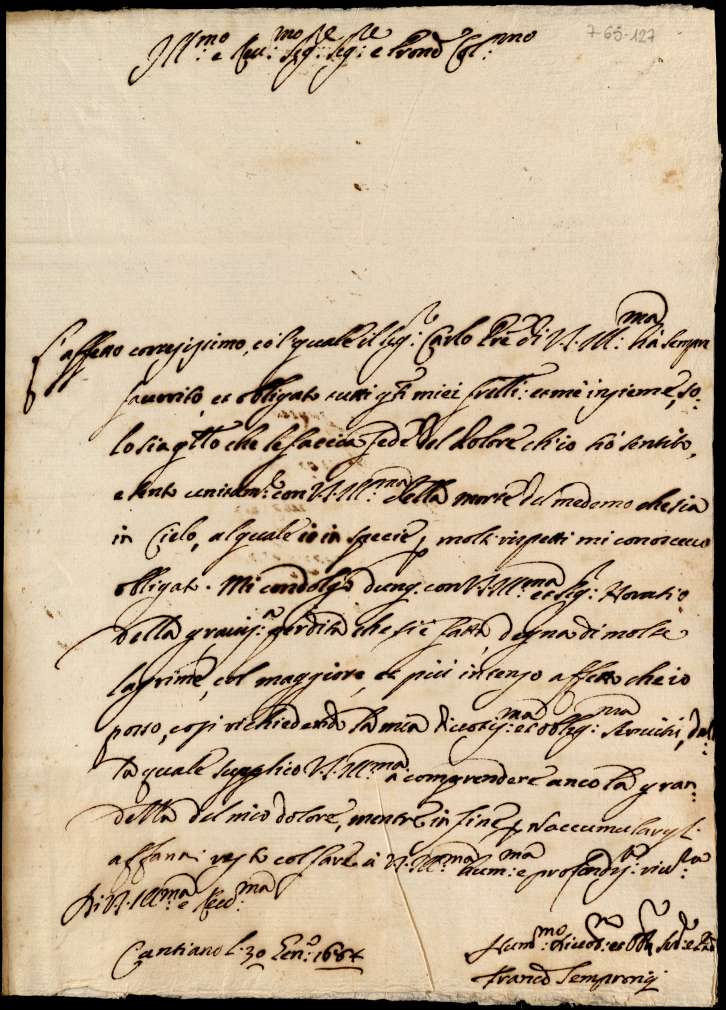 7-65-127
Ill:mo e Rev:mo Sig:re Sig:re e Pron Col:mo
L'affetto cortesissimo, co'l quale il Sig:r Carlo Pre di V.S. Ill:ma hà sempre
favorito, et obligato tutti gli miei frelli: et me insieme, so-
lo sia qllo che le faccia fede del dolore ch'io hò sentito,
e sento unitam:te con V.S. Ill:ma della morte del medemo che sia
in Cielo, al quale io in specie p molti rispetti mi conoscevo
obligato. Mi condolgo dunq. con V.S. Ill:ma et Sig:r Horatio
della graviss:a perdita che si è fatta, degna di molte
lagrime, col maggiore, et più intenso affetto che io
posso, così richiedendo la mia divotiss:ma et oblig:ma servitù, dal-
la quale supplico V.S. Ill:ma à comprendere anco la gran-
dezza del mio dolore, mentre in fine p non accumulargl.
affanni resto col fare à V.S. Ill:ma hum:ma e profondiss:a riv:za
Di V.S. Ill:ma e Rev:ma
Cantiano l. 30 Gen:o 1684
Hum:mo Divot:mo et Obl:
Franco Sempronij